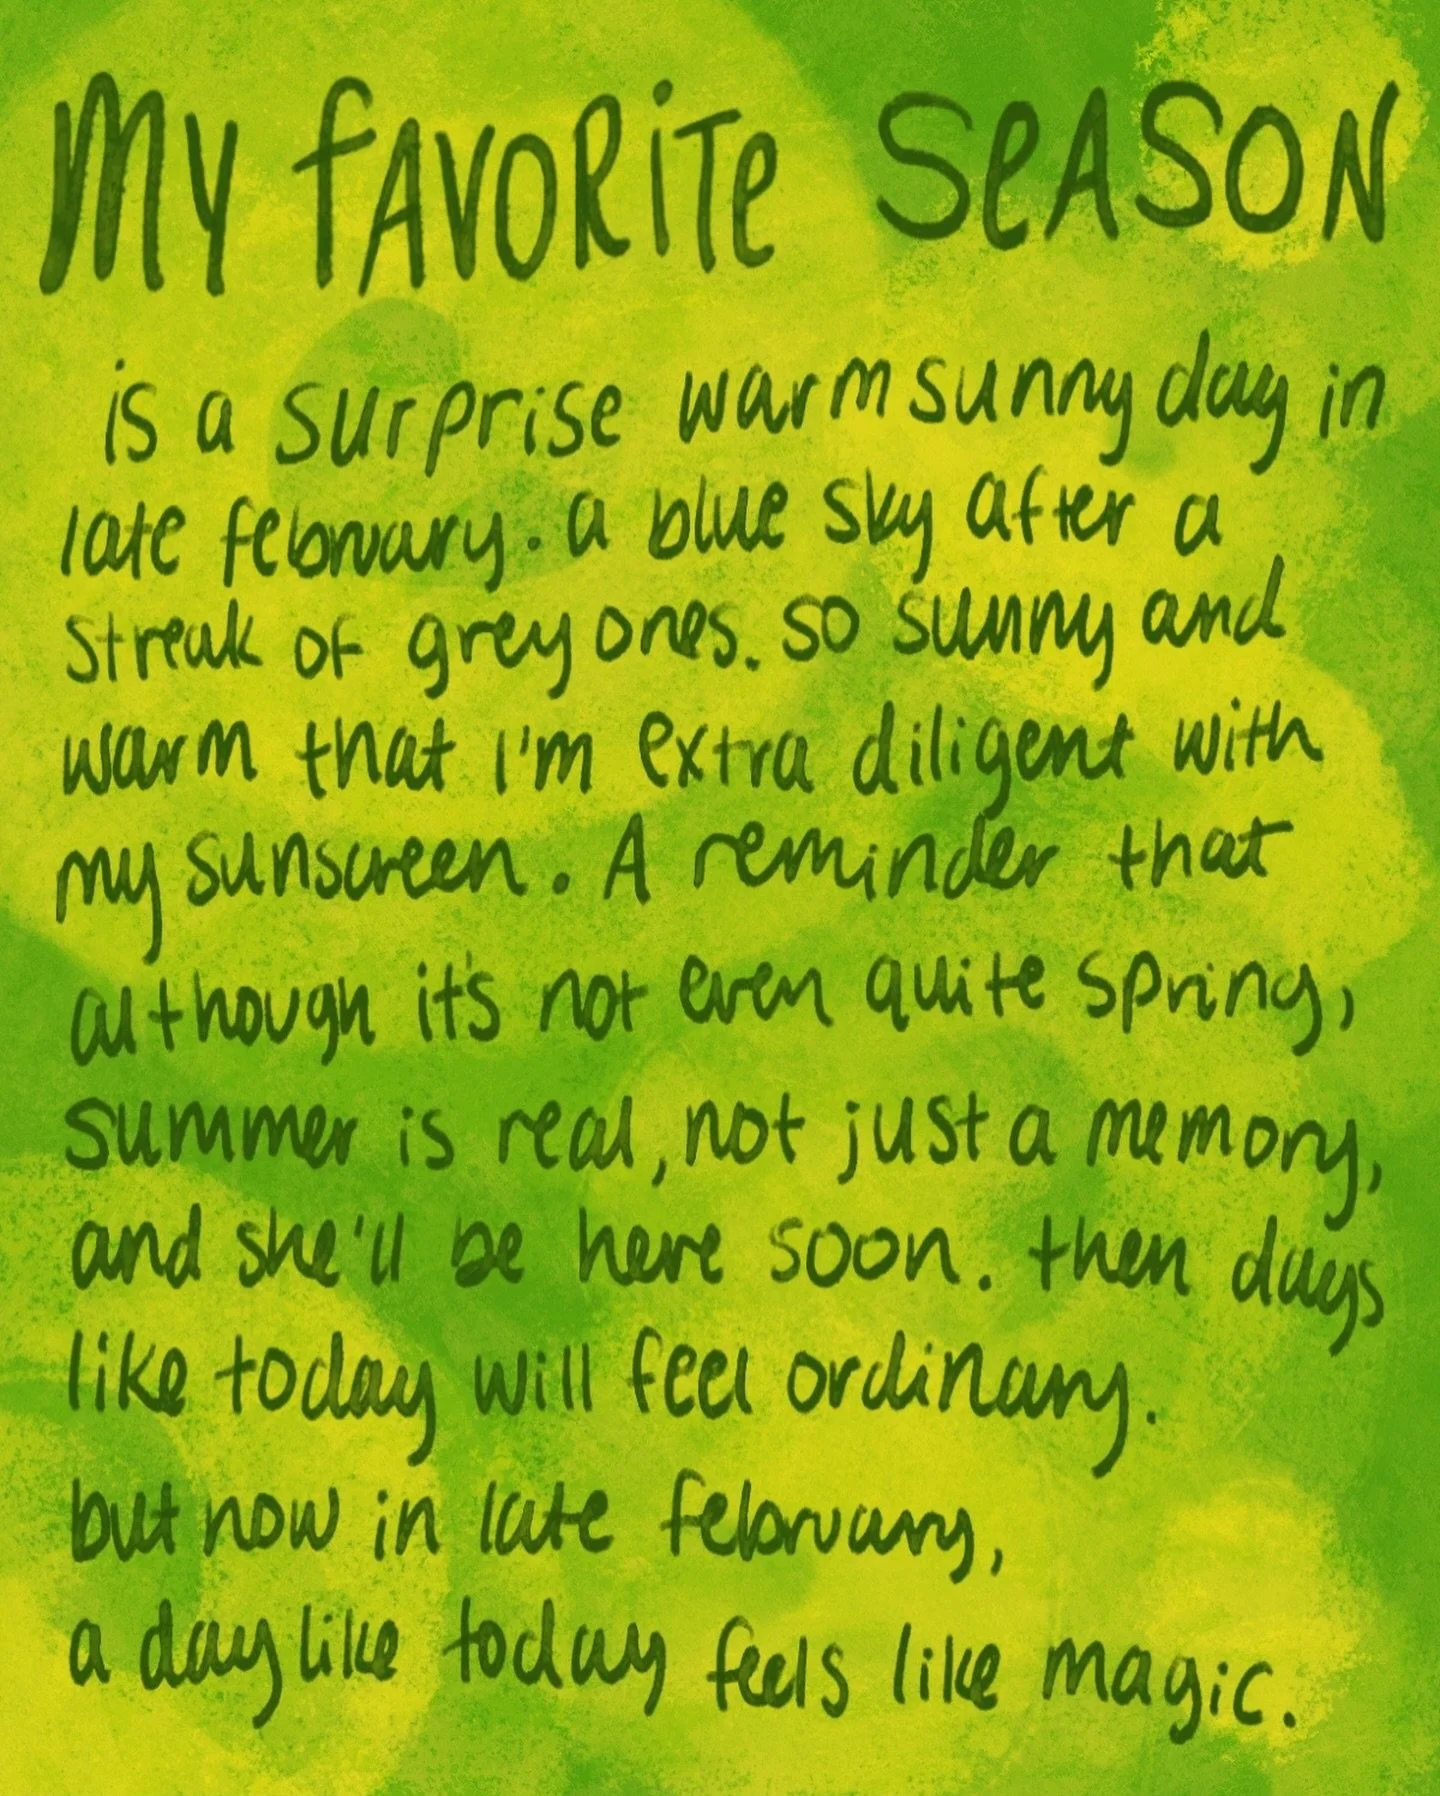 My fAVORiTe SeASON
is a surprise warm sunny day in
late february. a blue sky after a
streak of grey ones. so sunny and
warm that I'm extra diligent with
my sunscreen. A reminder that
although it's not even quite spring,
summer is real, not just a memory,
and she'll be here soon. then days
like today will feel ordinary.
but now in late february,
a day like today feels like magic.